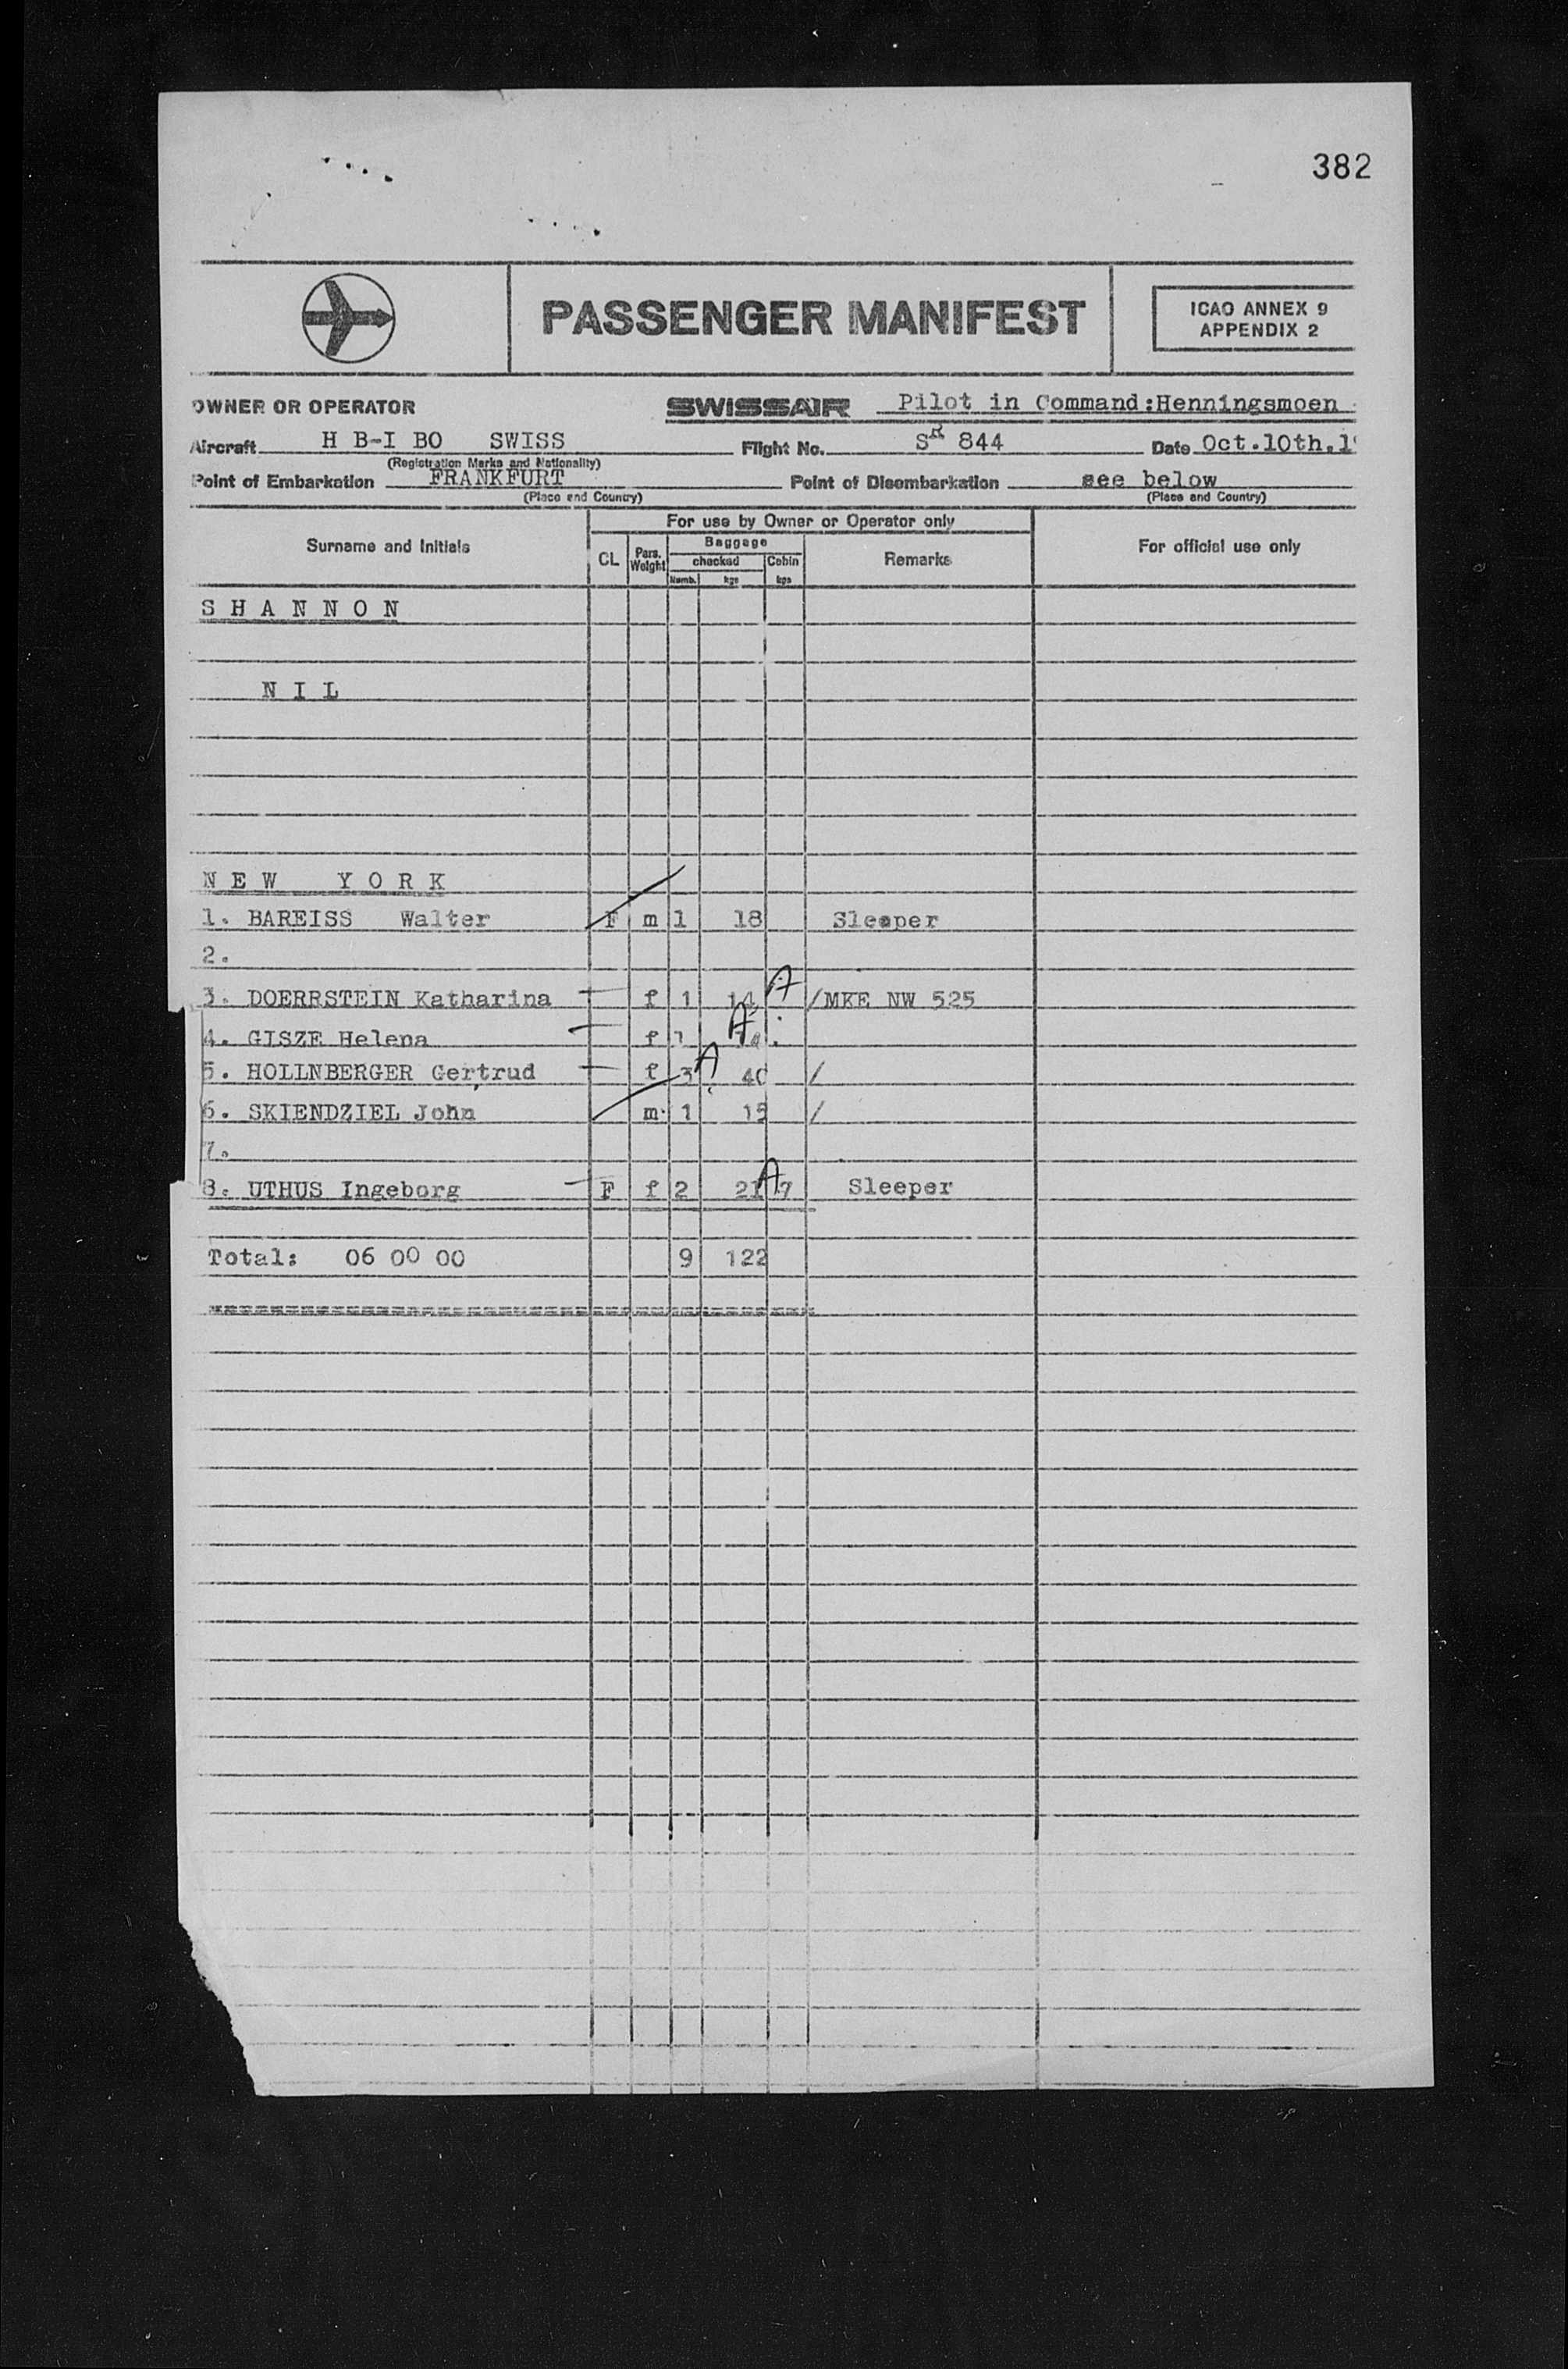 382
PASSENGER MANIFEST
ICAO ANNEX 9
APPENDIX 2
OWNER OR OPERATOR SWISSAIR Pilot in Command:Henningsmoen
Aircraft H B-I BO SWISS Flight No. SR 844 Date Oct.10th.1
(Registration Marks and Nationality)
Point of Embarkation FRANKFURT Point of Disembarkation see below
(Place and Country) (Place and Country)
For use by Owner or Operator only
Surname and Initials CL Pars. Weight Baggage Remarks For official use only
checked Cabin
Numb. kgs kgs
S H A N N O N
N I L
N E W Y O R K
1. BAREISS Walter F m 1 18 Sleeper
2.
3. DOERRSTEIN Katharina f 1 14 A /MKE NW 525
4. GISZE Helena f 1 A
5. HOLLNBERGER Gertrud f 3 A 40 /
6. SKIENDZIEL John m 1 15 /
7.
8. UTHUS Ingeborg F f 2 21 A 7 Sleeper
Total: 06 00 00 9 122